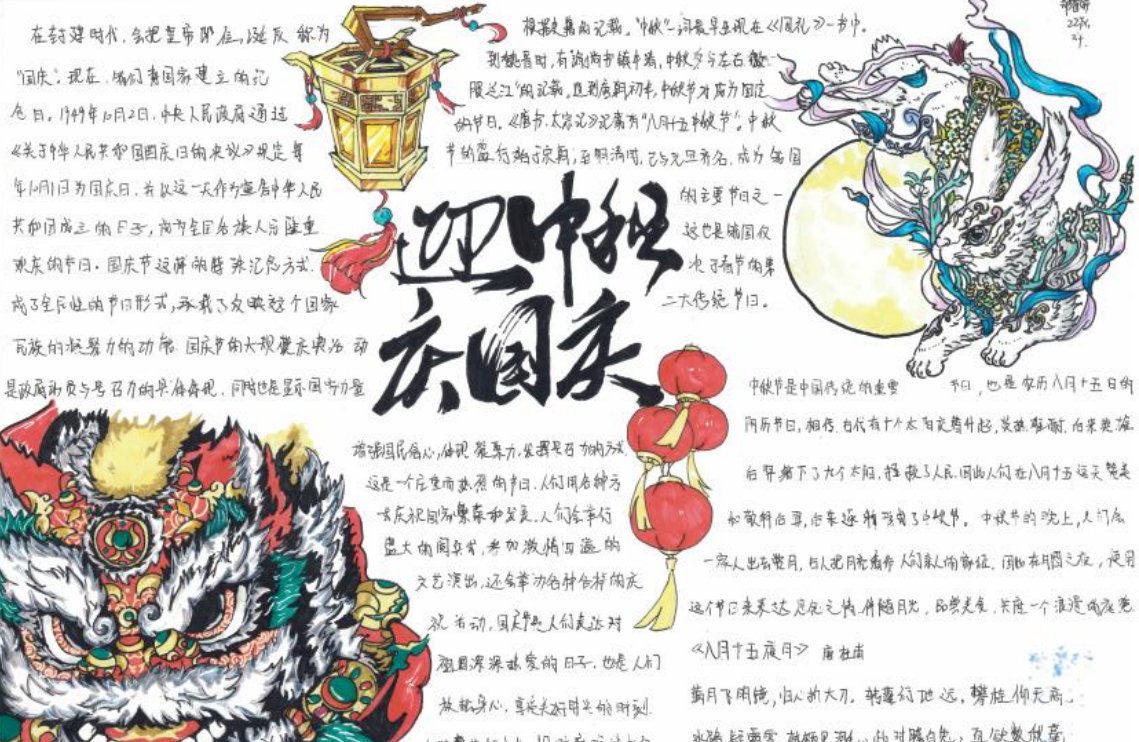 在封建时代,会把皇帝即位,诞辰称为
"国庆"。现在,我们青国家建立的记
念日。1949年10月2日,中央人民政府通过
《关于中华人民共和国国庆日的决议》规定每
年10月1日为国庆日,并以这一天作为宣告中华人民
共和国成立的日子,成为全国各族人民隆重
欢庆的节日。国庆节这种的特殊记念方式,
成了全民性的节日形式,承载了反映这个国家
民族的凝聚力的功能。国庆节的大规模庆典活动
是政府动员与号召力的具体体现,同时也是显示国家力量
增强国民信心,体现凝聚力,发挥号召力的方式
这是一个庄重而热烈的节日,人们用各种方
式庆祝国家繁荣和发展,人们会举行
盛大的阅兵式,参加激情四溢的
文艺演出,还会举办各种各样的庆
祝活动,国庆节是人们表达对
祖国深深热爱的日子,也是人们
放松身心,享受美好时光的时刻
迎中秋
庆国庆
根据史籍的记载,"中秋"一词最早出现在《周礼》一书中。
到魏晋时,有谕尚书镇牛渚,中秋夕与左右微
服泛江"的记载。直到唐朝初年,中秋节才成为固定
的节日。《唐书·太宗记》记载有"八月十五中秋节"。中秋
节的盛行始于宋朝,至明清时,已与元旦齐名,成为我国
的主要节日之一
这也是我国仅
次于春节的第
二大传统节日。
中秋节是中国传统的重要 节日,也是农历八月十五日的
阴历节日,相传,古代有十个太阳交替升起,炎热难耐,后来英雄
后羿射下了九个太阳,拯救了人民,因此人们在八月十五这天赞美
和敬拜后羿,后来逐渐形成了中秋节。中秋节的晚上,人们会
一家人出去赏月,古人把月亮看作人们亲人的象征,因此在月圆之夜,便用
这个节日来表达团圆之情,伴随月光,品尝美食,共度一个浪漫的夜晚
《八月十五夜月》 唐 杜甫
满月飞明镜,归心折大刀。转蓬行地远,攀桂仰天高。
水路疑霜雪,林栖见羽毛。此时瞻白兔,直欲数秋毫。